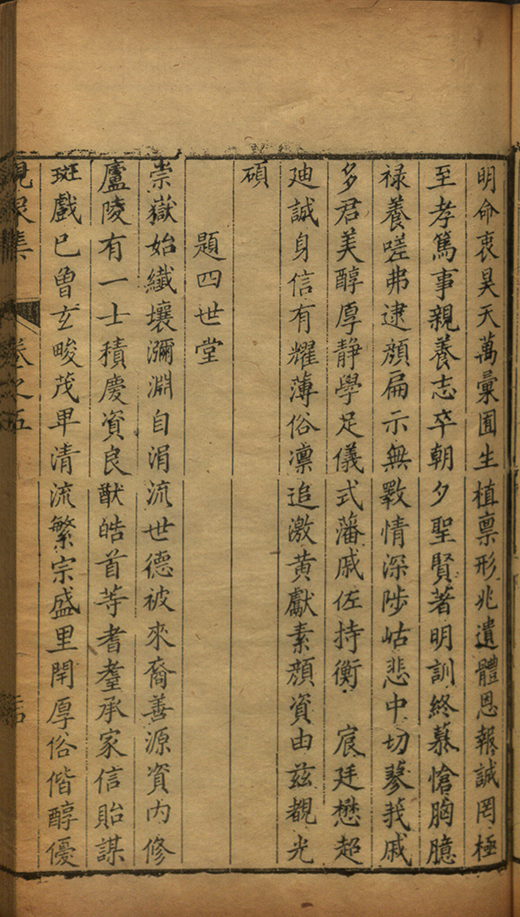 明命衷昊天萬彙囿生植禀形兆遺體恩報誠罔極
至孝篤事親養志卒朝夕聖賢著明訓終慕愴胸臆
禄養嗟弗逮顔扁示無斁情深陟岵悲中切蓼莪戚
多君美醇厚静學足儀式藩戚佐持衡 宸廷懋超
廸誠身信有耀薄俗凛追激黄獻素顔資由兹覩光
碩
題四世堂
崇嶽始纎壤瀰淵自涓流世德被來裔善源資内修
廬陵有一士積慶資良猷皓首等耆耋承家信貽謀
斑戲已曾玄畯茂毕清流繁宗盛里閈厚俗偕醇優
集 卷之五